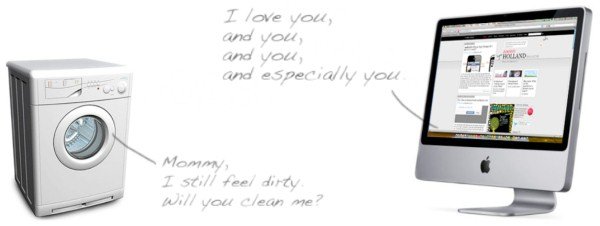 I love you,
and you,
and you,
and especially you.
HOLLAND
Mommy,
I still feel dirty.
Will you clean me?